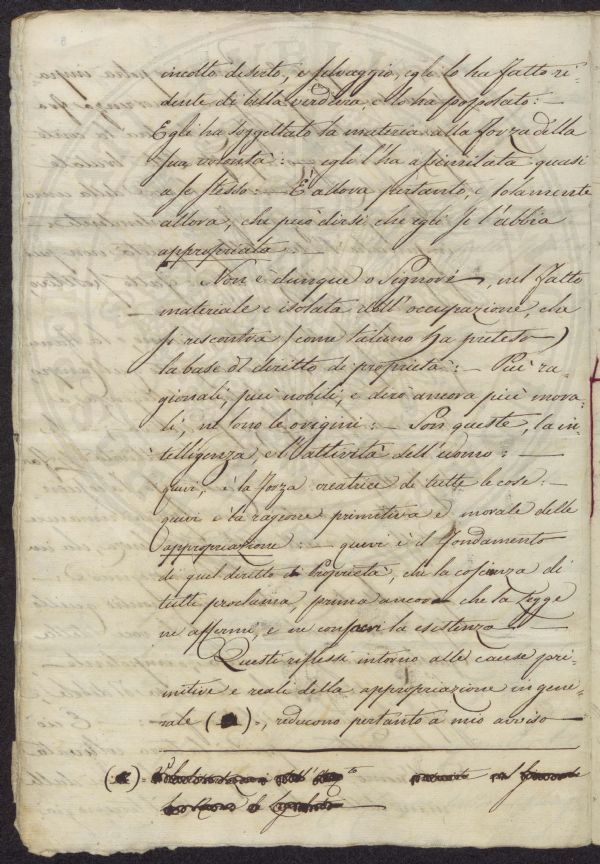 incolto deserto, e selvaggio, egli lo ha fatto ri-
dente di bella verdura, e lo ha popolato: —
Egli ha soggettato la materia alla forza della
sua volontà: — egli l'ha assimilata quasi
a se stesso: — E' allora pertanto, e solamente
allora, che può dirsi che egli se l'abbia
appropriata: —
Non è dunque o Signori, nel fatto
materiale e isolato dell'occupazione, che
si riscontra (come taluno ha preteso)
la base del diritto di proprietà: — Più ra-
gionali, più nobili, e dirò ancora più mora-
li, ne sono le origini: — Son queste, la in-
telligenza e l'attività dell'uomo: —
quivi, è la forza creatrice di tutte le cose: —
quivi è la ragione primitiva e morale delle
appropriazione: — quivi è il fondamento
di quel diritto di proprietà, che la coscienza di
tutti proclama, prima ancora che la legge
ne affermi, e ne consacri la esistenza —
Questi riflessi intorno alle cause pri-
mitive e reali della appropriazione in gene-
rale ( ) =, riducono pertanto a mio avviso —